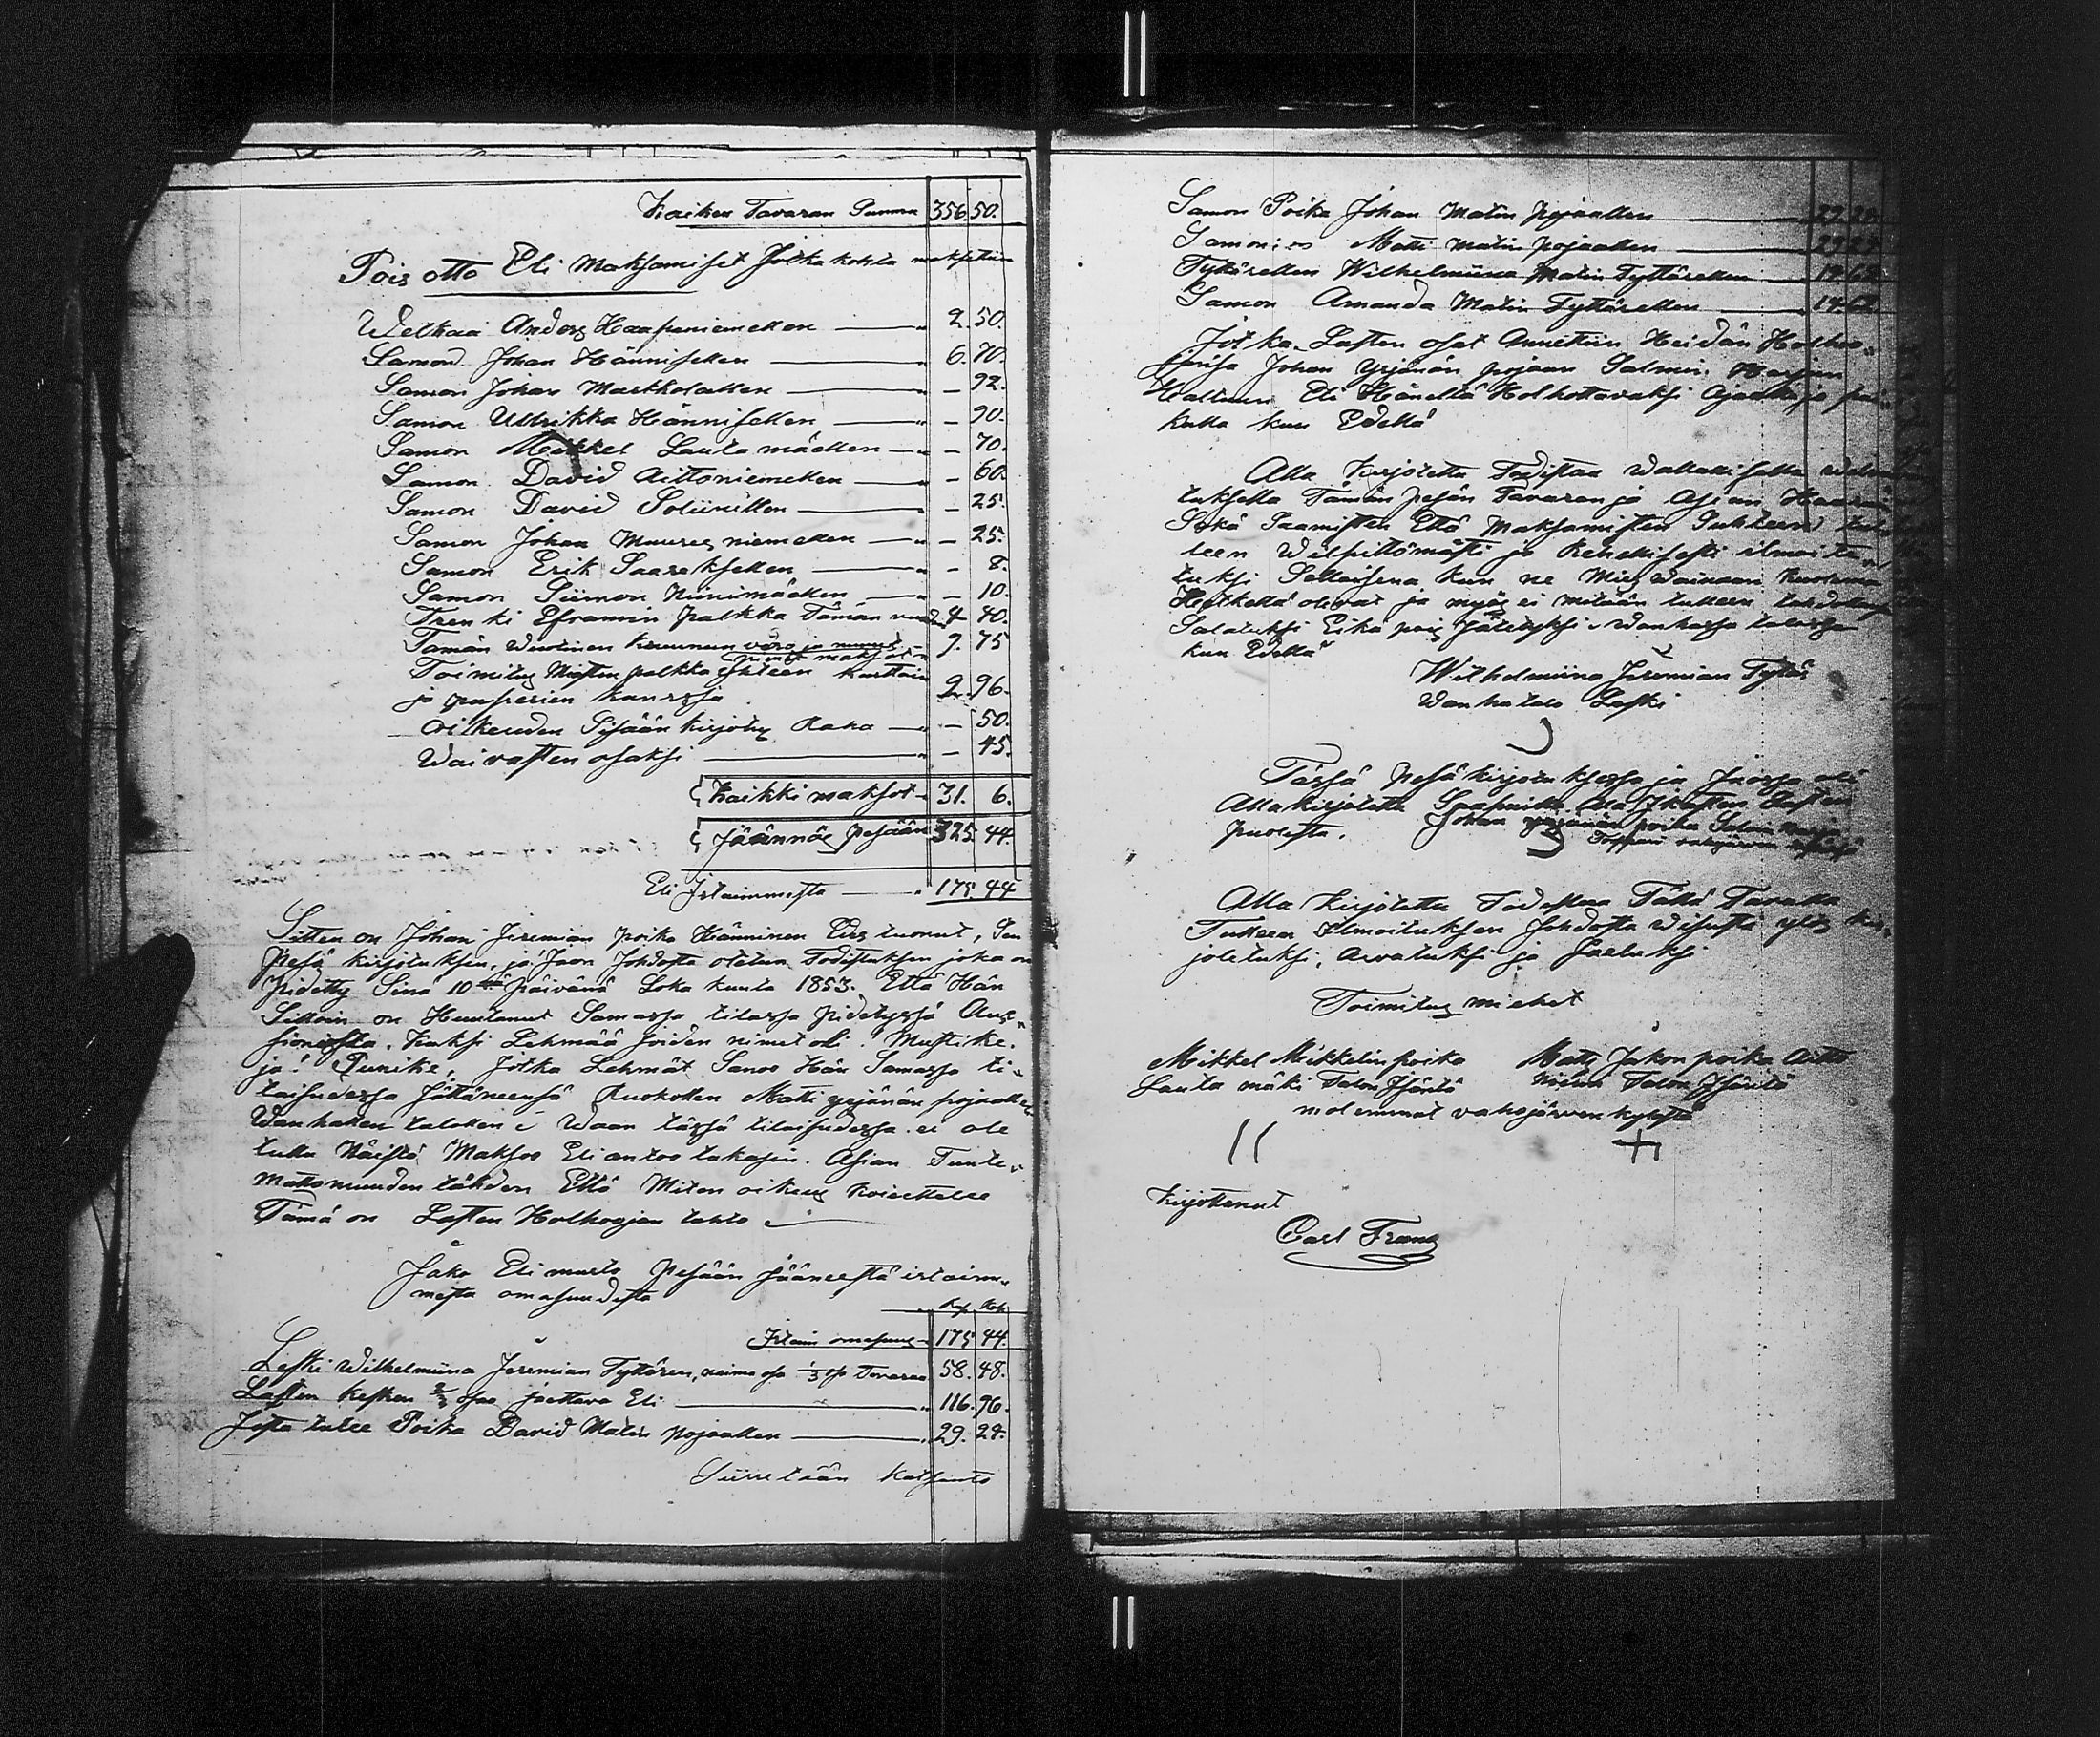 Kaiken Tavaran Summa 356. 50.
Pois otto Eli Maksamiset Jotka kohta maksettiin
Welkaa Anders Haapaniemellen — " 2. 50.
Samon Johan Hänniselle — " 6. 70.
Samon Johan Markkolallen — " – 92.
Samon Ullrikka Hännisellen — " – 90.
Samon Mikkel Lautamäellen — " – 70.
Samon David Aittoniemellen — " – 60.
Samon David Soliinillen — " – 25.
Samon Johan Muuresniemellen — " – 25.
Samon Erik Saareksellen — " – 8.
Samon Siimon Niinimäellen — " – 10.
Trenki Eframin palkka Tämän 4 40.
Tämän Wuotinen kruunun vero ja muut maksot 9. 75
Toimitus Miesten palkka yhteen karttain
ja papierien kanssa 2. 96.
Oikeuden Sisään kirjotus Raha — " – 50.
Waivasten osaksi — " – 45.
Kaikki maksot – 31. 6.
Jäännös pesään 325. 44.
Eli Irtaimmesta — " 175. 44
Sitten on Johan Jeremian poika Hänninen Edes tuonut, Sen
Pesä kirjotuksen, ja Jaon Johdosta otetun Todistuksen joka on
pidetty Sinä 10tä päivänä Loka kuuta 1853. Että Hän
Silloin on Huutanut Samassa tilassa pidetyssä Auk„
sionissa. Kaksi Lehmää joiden nimet oli: Mustike.
ja: Punike, Jotka Lehmät Sanoo Hän Samassa ti„
laisudessa Jättäneensä Ruokollen Matti yrjänän pojallen
Wanhallen talollen: Waan tässä tilaisudessa ei ole
tullu Näistä Maksoo Eli antoo takasin. Asian Tunte„
mattomuuden tähden Että Miten oikeus koiettelee
Tämä on Lasten Holhoojan tahto
Jako Eli muuto Pesään Jääneestä irtaim„
mesta omasuudesta
Rup. Kop.
Irtain omasuus – 175 44.
Leski Wilhelmiina Jeremian Tyttären, naima osa 1/3 osa Tavaraa 58. 48.
Lasten kesken 2/3 osaa jaettava Eli — " 116. 96.
Josta tulee Poika David Matin pojallen — " 29. 24.
Siirretään katsanto
Samon Poika Johan Matin pojaallen —
Samon: es Matti Matin pojaallen —
Tyttärellen Wilhelmiina Matin Tyttärellen —
Samon Amanda Matin Tyttärellen —
Jotka Lasten osat Annettiin Heidän Holhoo„
jansa Johan Yrjänän pojaan Salmin Harjun
Haltuun Eli Hänellä Holhottavaksi ajaaksi ja pai„
kalla kun Edellä
Alla kirjotettu Todistan Wallallisella
tuksella Tämän pesän Tavaran ja Asian Haaran
Sekä Saamisten Että Maksamisten Suhteen
leen Wilpittömästi ja Rehellisesti ilmoite
tuksi Sellaisena kun ne Mies Wainaan kuolema
Hetkellä olivat ja myös ei mitään tulleen tahdottu
Salatuksi Eikä pois Jätetyksi. Wanhassa talossa
kun Edellä
Wilhelmiina Jeremian Tytär
Wanhatalo Leski
Tässä pesä kirjotuksessa ja Jaossa oli
Alla kirjotettu Saapuilla Ala Ikästen Lasten
puolesta. Johan yrjänän poika Salmi
Alla kirjotettu Todistaa Tällä Tavalla
Tulleen Ilmoituksen Johdosta Wisusti ylös kir„
joletuksi, Arvatuksi ja Jaetuksi
Toimitus miehet
Mikkel Mikkelin poika Matts Jakon poika Aitto
Lauta mäki Talon Isäntä Niemi Talon Isäntä
molemmat vahojärven kylästä
Kirjottanut
Carl Franz